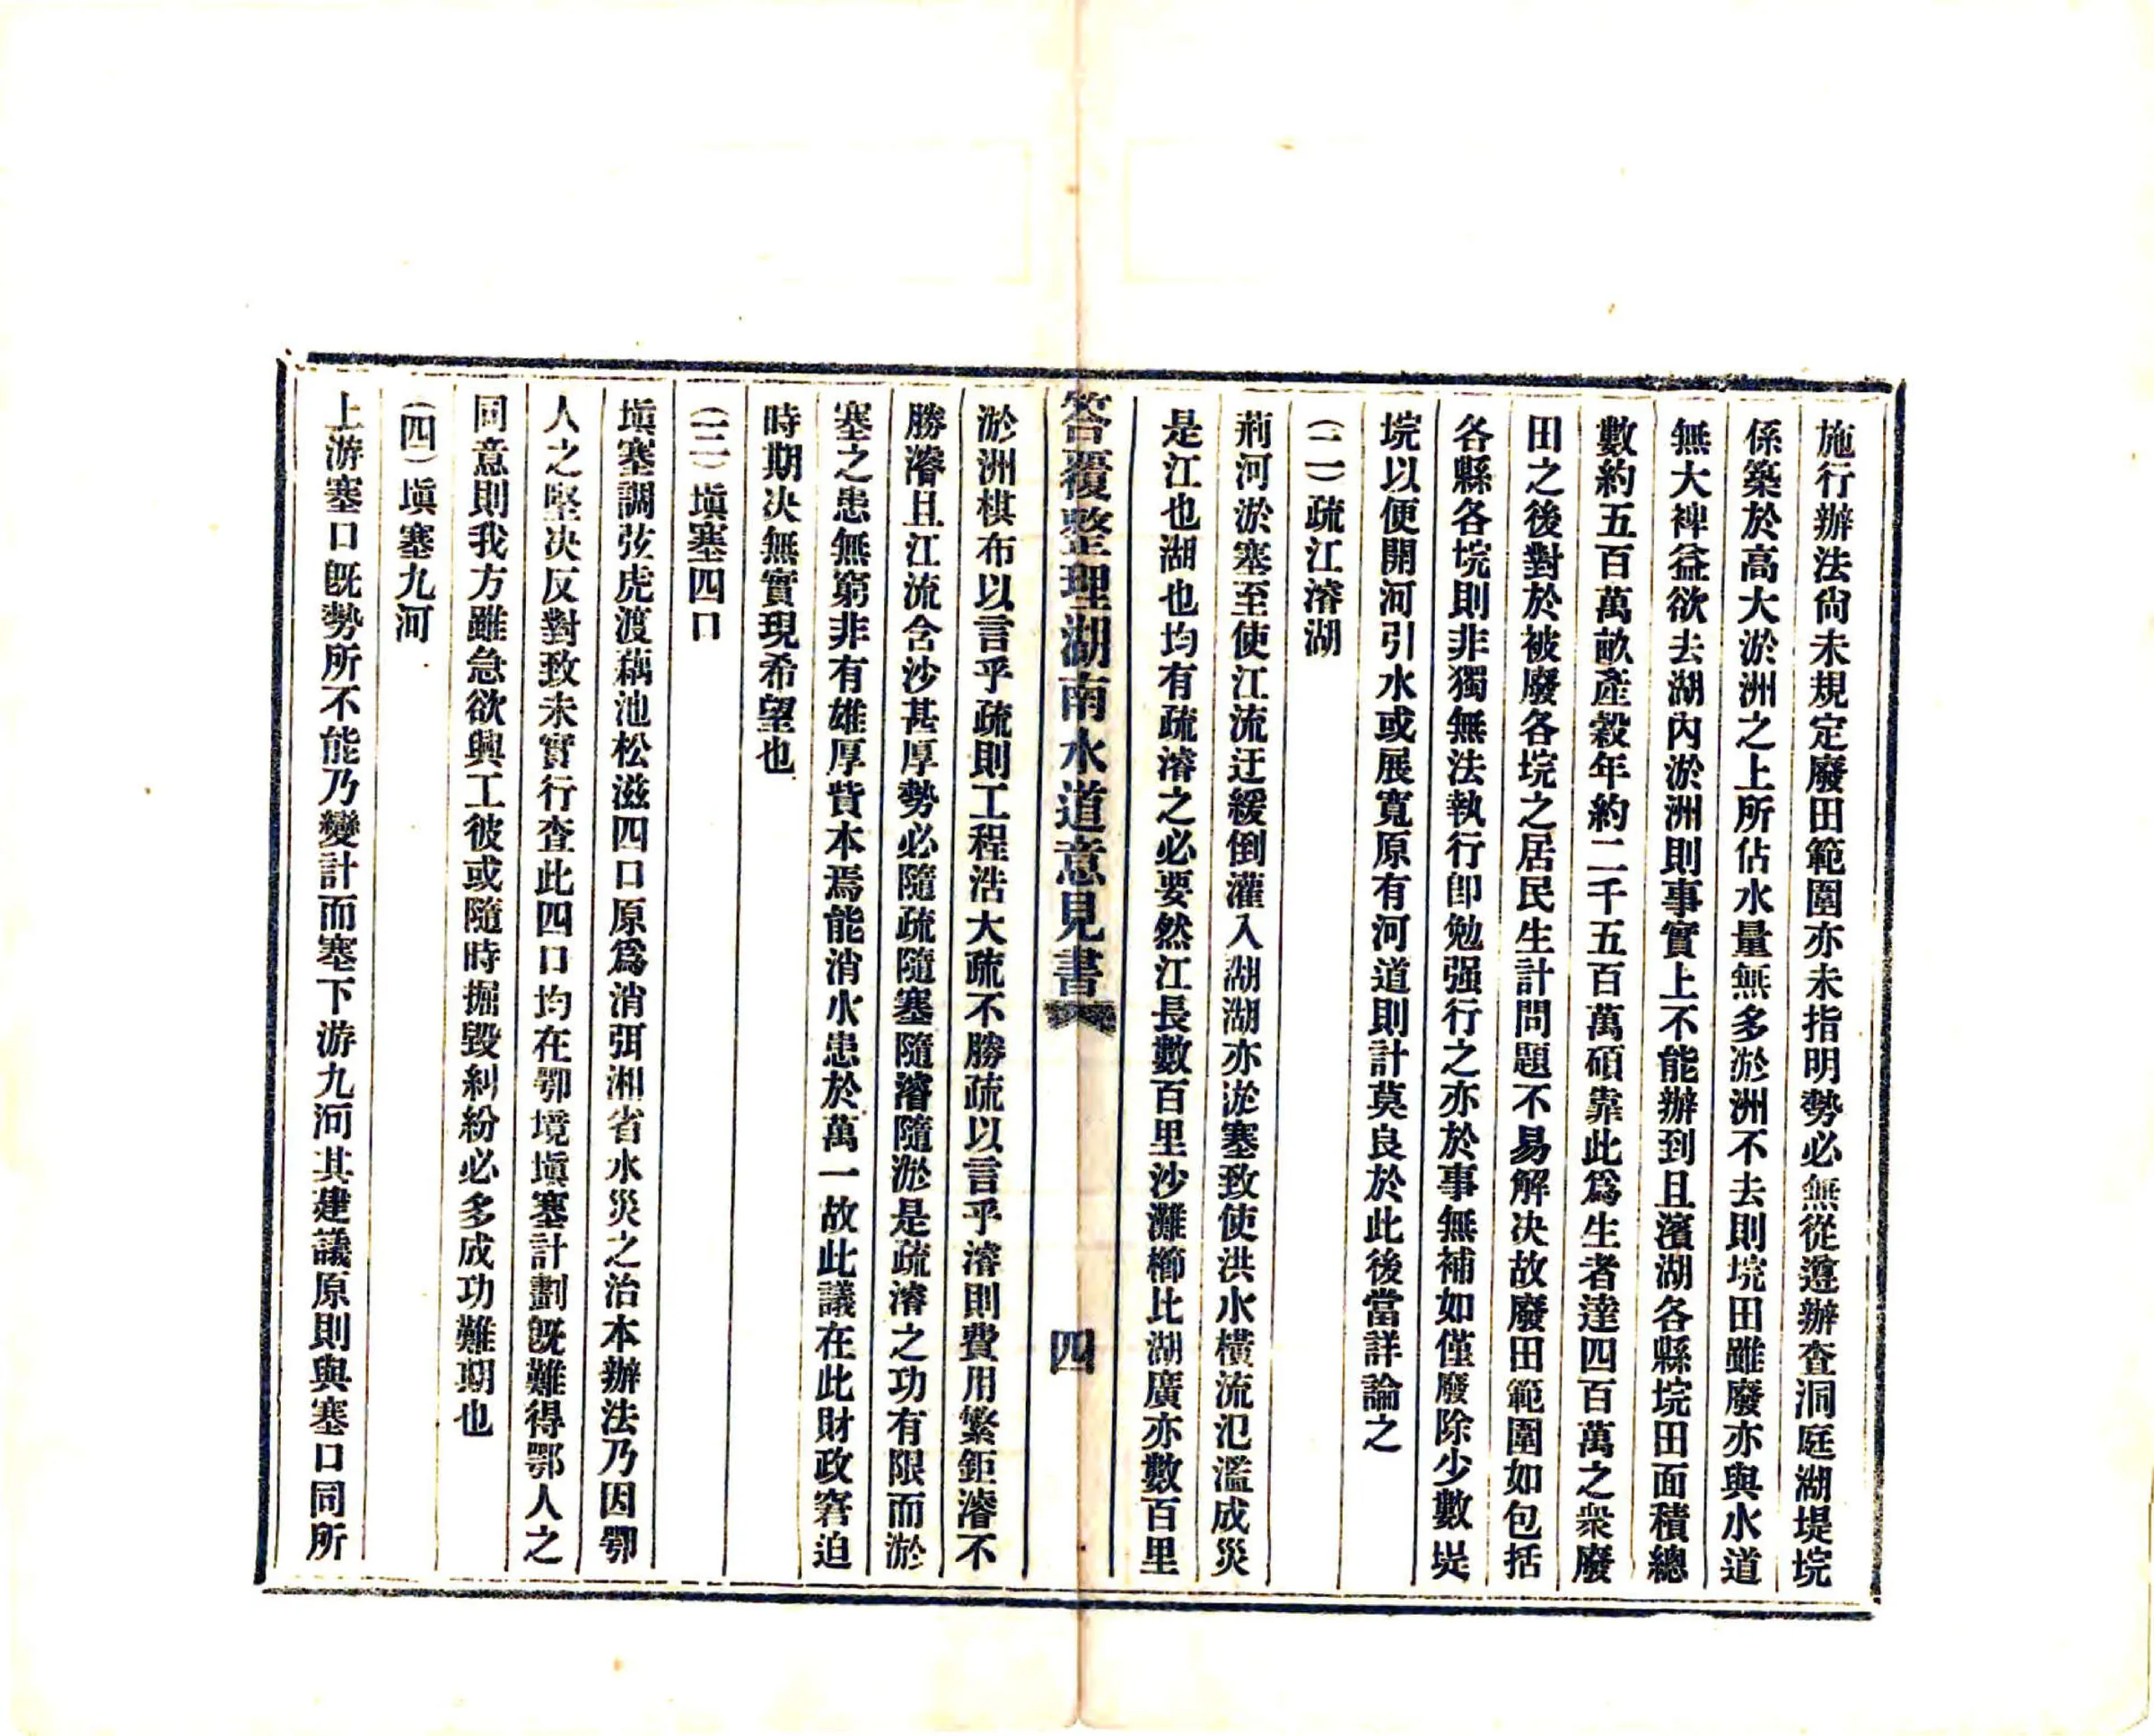 施行辦法尙未規定廢田範圍亦未指明勢必無從遵辦查洞庭湖堤垸
係築於高大淤洲之上所佔水量無多淤洲不去則垸田雖廢亦與水道
無大裨益欲去湖內淤洲則事實上不能辦到且濱湖各縣垸田面積總
數約五百萬畝產穀年約二千五百萬碩靠此爲生者達四百萬之衆廢
田之後對於被廢各垸之居民生計問題不易解决故廢田範圍如包括
各縣各垸則非獨無法執行卽勉强行之亦於事無補如僅廢除少數堤
垸以便開河引水或展寬原有河道則計莫良於此後當詳論之
(二)疏江濬湖
荊河淤塞至使江流迂緩倒灌入湖湖亦淤塞致使洪水橫流氾濫成災
是江也湖也均有疏濬之必要然江長數百里沙灘櫛比湖廣亦數百里
答覆整理湖南水道意見書
四
淤洲棋布以言乎疏則工程浩大疏不勝疏以言乎濬則費用繁鉅濬不
勝濬且江流含沙甚厚勢必隨疏隨塞隨濬隨淤是疏濬之功有限而淤
塞之患無窮非有雄厚貲本焉能消水患於萬一故此議在此財政窘迫
時期决無實現希望也
(三)塡塞四口
塡塞調弦虎渡藕池松滋四口原爲消弭湘省水災之治本辦法乃因鄂
人之堅决反對致未實行查此四口均在鄂境塡塞計劃旣難得鄂人之
同意則我方雖急欲興工彼或隨時掘毀糾紛必多成功難期也
(四)塡塞九河
上游塞口旣勢所不能乃變計而塞下游九河其建議原則與塞口同所